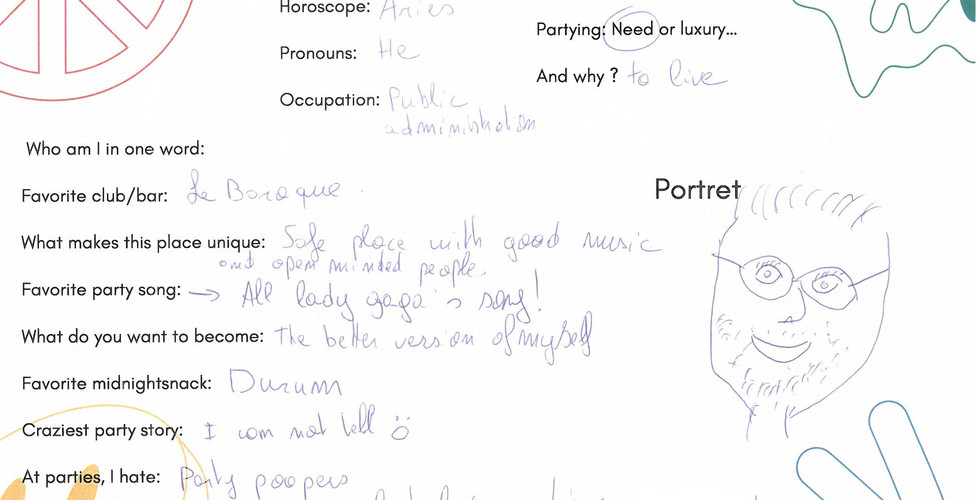 Horoscope: Aries
Partying: Need or luxury...
Pronouns: He
And why ? to live
Occupation: Public
administration
Who am I in one word:
Favorite club/bar: Le Baroque
Portret
What makes this place unique: Safe place with good music
and open minded people.
Favorite party song: → All lady gaga's song!
What do you want to become: The better version of myself
Favorite midnightsnack: Durum
Craziest party story: I can not tell
At parties, I hate: Party poopers